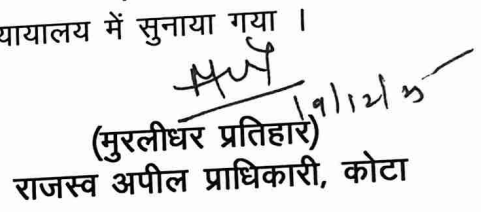 यायालय में सुनाया गया ।
19/12/
(मुरलीधर प्रतिहार)
राजस्व अपील प्राधिकारी, कोटा